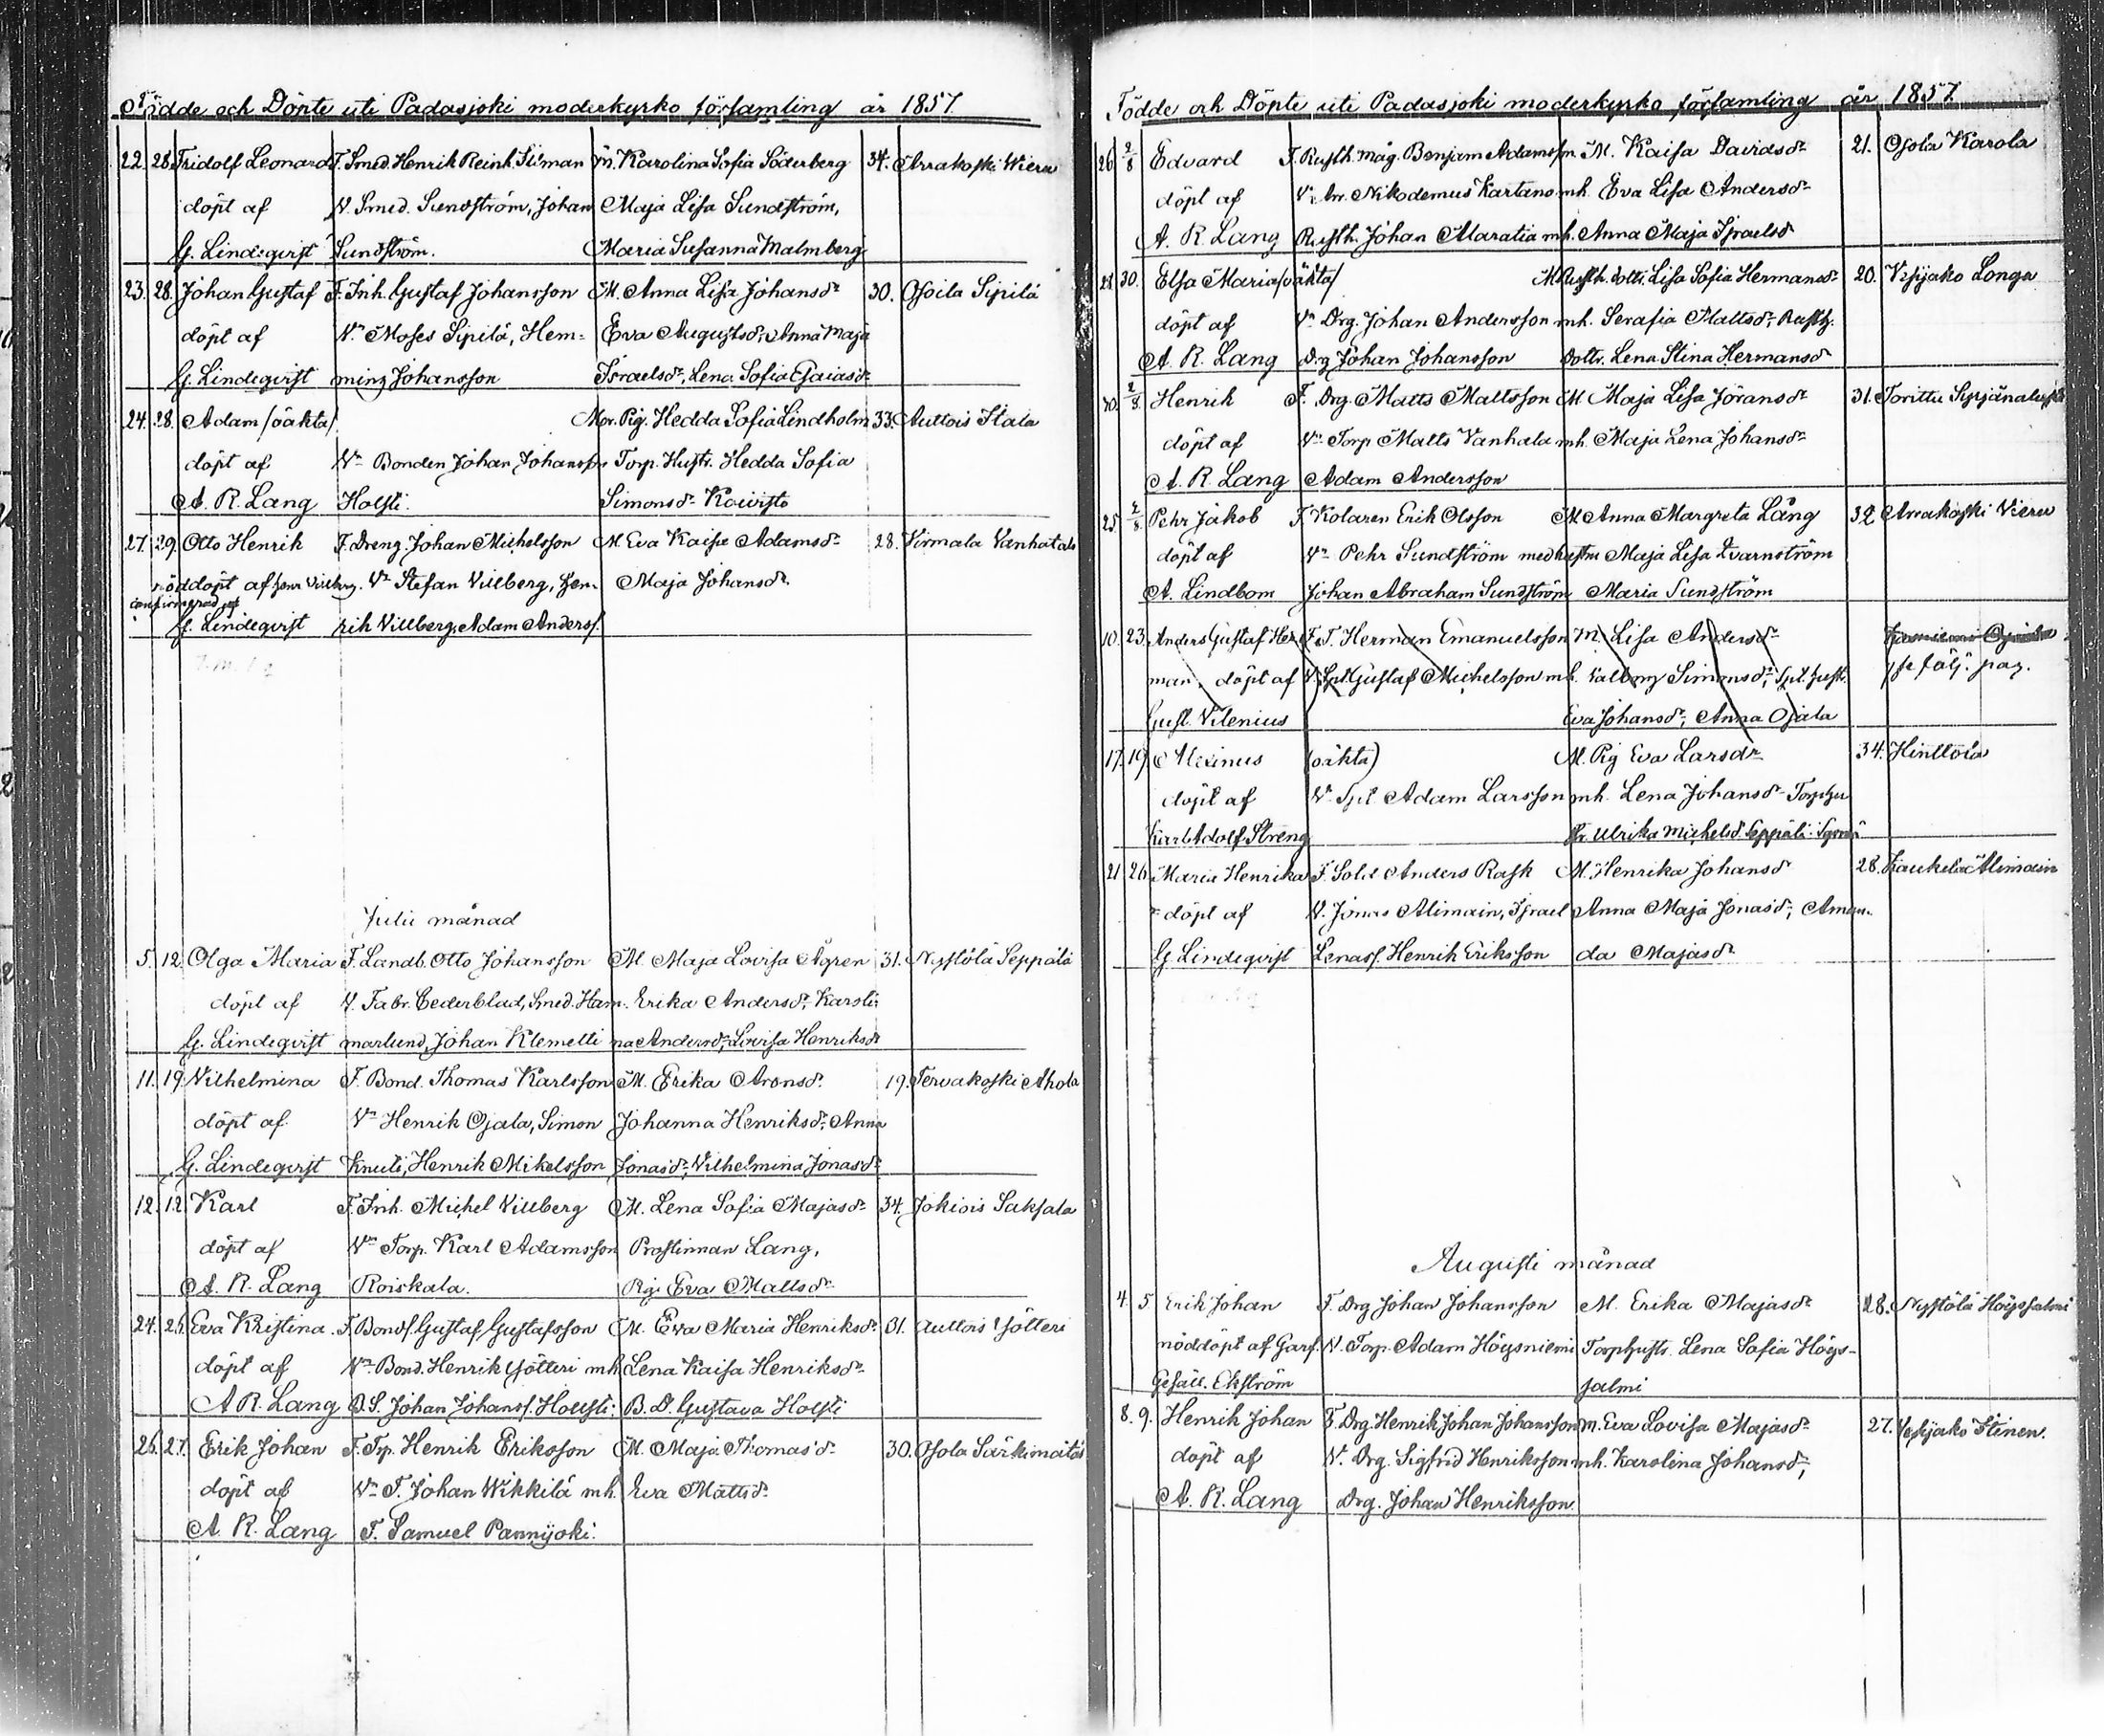 Födde och Döpte uti Padasjoki moderkyrko församling år 1857.
22. 28. Fridolf Leonard F. Smed. Henrik Reinh. Siiman M. Karolina Sofia Söderberg 34. Arrakoski Wieru
döpt af V. Smed. Sundström, Johan Maja Lisa Sundström,
G. Lindeqvist Sundström. Maria Susanna Malmberg
23. 28. Johan Gustaf F. Inh. Gustaf Johansson M. Anna Lisa Johansdr 30. Osoila Sipilä
döpt af Vn Moses Sipilä, Hem= Eva Augustsdr, Anna Maja
G. Lindeqvist ming Johansson Israelsdr, Lena Sofia Esaiasdr
24. 28. Adam /oäkta/ Mor. Pig. Hedda Sofia Lindholm 33. Auttois Stala
döpt af Vn Bonden Johan Johansson Torp. Hustr. Hedda Sofia
A. R. Lang Holsti. Simonsdr Koivisto
27. 29. Otto Henrik F. Dreng. Johan Michelsson M. Eva Kaisa Adamsdr 28. Virmala Vanhatalo
nöddöpt af Henr Villberg. Vn Stefan Villberg, Hen- Maja Johansdr.
confirmerad af
G. Lindeqvist rik Villberg, Adam Anderss.
Julii månad
5. 12. Olga Maria F. Landb. Otto Johansson M. Maja Lovisa Ågren 31. Nystölä Seppälä
döpt af V. Fabr. Cederblad, Smed. Ham- Erika Andersdr, Karoli-
G. Lindeqvist marlund, Johan Klemetti na Andersdr, Lovisa Henriksdr
11. 19. Vilhelmina F. Bond. Thomas Karlsson M. Erika Aronsdr. 19. Tervakoski Ahola
döpt af Vn Henrik Ojala, Simon Johanna Henriksdr, Anna
G. Lindeqvist Knuti, Henrik Mikelsson Jonasdr, Vilhelmina Jonasdr
12. 12. Karl F. Inh. Michel Villberg M. Lena Sofia Majasdr 34. Jokiois Saksala
döpt af Vn Torp. Karl Adamsson Prostinnan Lang,
A. R. Lang Roiskala. Pig. Eva Mattsdr
24. 25. Eva Kristina. F. Bonds. Gustaf Gustafsson M. Eva Maria Henriksdr 31. Auttois Yötteri
döpt af Vn Bond. Henrik Yötteri mh Lena Kaisa Henriksdr
A R. Lang B.S. Johan Johanss. Holsti: B. D. Gustava Holsti
26. 27. Erik Johan F. Trp. Henrik Eriksson M. Maja Thomasdr 30. Osola Särkimatás
döpt af Vn T. Johan Wikkilä mh. Eva Mattsdr
A. R. Lang T. Samuel Pannijoki.
Födde och Döpte uti Padasjoki moderkyrko församling år 1857.
26. 2/8 Edvard F. Rusth. måg. Benjam Adamsson M. Kaisa Davidsdr 21. Osola Karola
döpt af Vn Arr. Nikodemus Kartano mh. Eva Lisa Andersdr
A. R. Lang Rusth. Johan Maratia mh. Anna Maja Israelsd
21. 30. Elsa Maria /oäkta/ M Rusth. dottr. Lisa Sofia Hermansdr 20. Vesijako Longa
döpt af Vn Drg. Johan Andersson mh. Serafia Mattsdr, Rusth.
A. R. Lang Drg Johan Johansson dottr. Lena Stina Hermansd
30. 2/8 Henrik F. Drg. Matts Mattsson M Maja Lisa Jöransdr 31. Torittu
döpt af Vn Torp Matts Vanhala mh. Maja Lena Johansdr
A. R. Lang Adam Andersson
25. 2/8 Pehr Jakob F. Kolaren Erik Olsson M. Anna Margreta Lång 32 Arrakoski Vieru
döpt af Vn Pehr Sundström med hustru Maja Lisa Qvarnström
A. Lindbom Johan Abraham Sundström Maria Sundström
10. 23. Anders Gustaf Her- F. T. Herman Emanuelsson M. Lisa Andersdr
man, döpt af V. Spl. Gustaf Michelsson mh. Valborg Simonsdr, Spl. hust. /se följ. pag.
Gust. Vilenius Eva Johansdr, Anna Ojala
17. 19 Alexinus (oäkta) M. Pig Eva Larsdr 34. Hinttola
döpt af V. Spl Adam Larsson mh. Lena Johansdr Torphu
Karl Adolf Streng str. Ulrika Michelsd. Seppälä
21 26 Maria Henrika F. Sold Anders Rask M. Henrika Johansd 28. Kaukela Alimain
döpt af V. Jonas Alimain, Israel Anna Maja Jonasdr, Aman-
G. Lindeqvist Lenass. Henrik Eriksson da Majasdr
Augusti månad
4. 5. Erik Johan F. Drg Johan Johansson M. Erika Majasdr 28. Nystölä Höyssalmi
nöddöpt af Garf. V. Torp. Adam Höysniemi Torphustr. Lena Sofia Höys-
Gesäll. Ekström salmi
8. 9. Henrik Johan F. Drg. Henrik Johan Johansson M. Eva Lovisa Majasdr 27. Vesijako Iltinen.
döpt af V. Drg. Sigfrid Henriksson mh. Karolina Johansdr,
A. R. Lang Drg. Johan Henriksson.